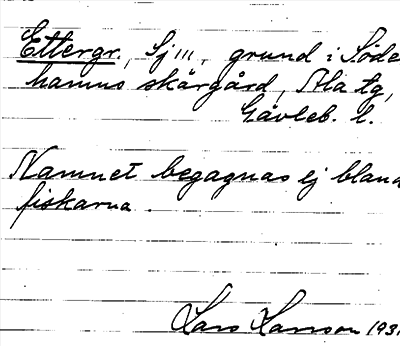 Ettergr., Sj III, grund i Söde
hamns skärgård, Ala tg,
Gävleb. l.
Namnet begagnas ej bland
fiskarna.
Lars Larsson 193